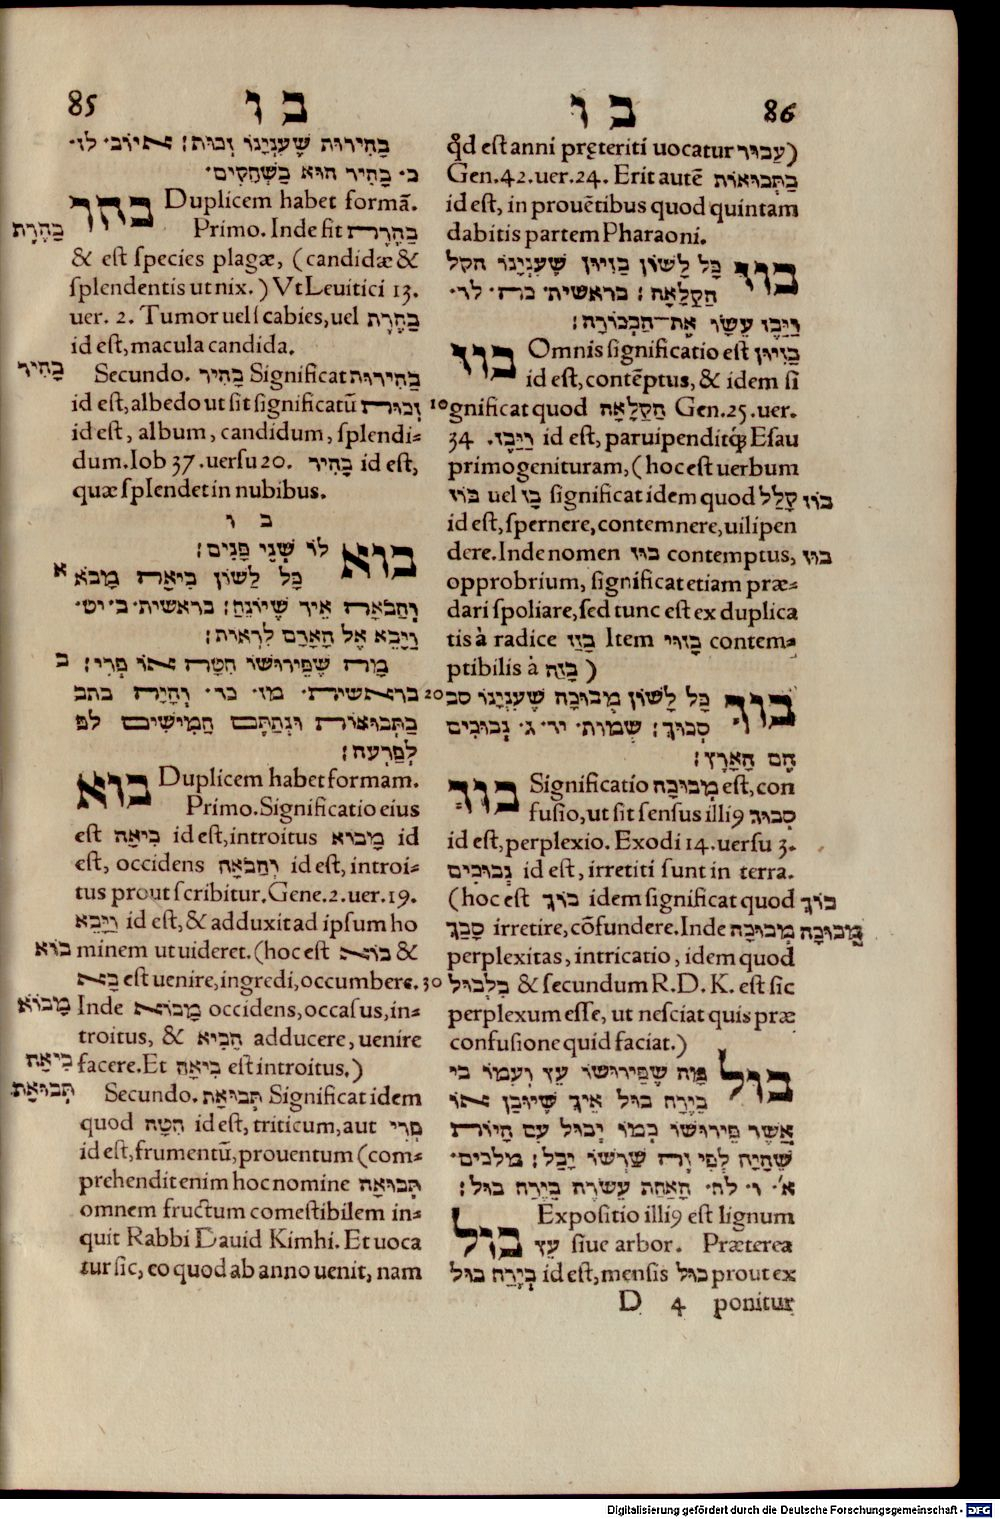 85
ב ו
בַּחִירוּת שֶׁעִנְיָנוֹ זְכוּת׃ איוב· לז·
כ· בָּהִיר הוּא בַּשְּׁחָקִים·
Duplicem habet formã.
Primo. Inde fit בַּהֶרֶת
בַּהֶרֶת
& est species plagæ, (candidæ &
splendentis ut nix.) Vt Leuitici 13.
uer. 2. Tumor uel scabies, uel בַּהֶרֶת
id est, macula candida.
בָּהִיר
Secundo. בָּהִיר Significat בַּהִירוּת
id est, albedo ut sit significatũ זְכוּת
id est, album, candidum, splendi=
dum. Iob 37. uersu 20. בָּהִיר id est,
quæ splendet in nubibus.
ב ו
בוא לוֹ שְׁנֵי פָנִים׃
א כָּל לַשׁוֹן בִּיאָה מָבֹא
אֵיךְ שֶׁיּוֹנַח׃ בראשית· ב· יט·
וַיָּבֵא אֶל הָאָדָם לִרְאוֹת׃
ב שֶׁפֵּירוּשׁוֹ חִטָּה או פְּרִי׃
בראשית· מז· כד· וְהָיָה כתב
בַּתְּבוּאוֹת וּנְתַתֶּם חֲמִישִׁים לפ
לְפַרְעֹה׃
בוא Duplicem habet formam.
Primo. Significatio eius
est בִּיאָה id est, introitus מָבוֹא id
est, occidens id est, introi=
tus prout scribitur. Gene. 2. uer. 19.
וַיָּבֵא id est, & adduxit ad ipsum ho
בוא
minem ut uideret. (hoc est בוא &
בָּא est uenire, ingredi, occumbere.
מָבוֹא
Inde מָבוֹא occidens, occasus, in=
troitus, & הֵבִיא adducere, uenire
בִּיאָה
facere. Et בִּיאָה est introitus.)
תְּבוּאָה
Secundo. תְּבוּאָה Significat idem
quod חִטָּה id est, triticum, aut פְּרִי
id est, frumentũ, prouentum (com=
prehendit enim hoc nomine תְּבוּאָה
omnem fructum comestibilem in=
quit Rabbi Dauid Kimhi. Et uoca
tur sic, eo quod ab anno uenit, nam
ב ו
86
qđ est anni pręteriti uocatur עִבוּר)
Gen. 42. uer. 24. Erit autẽ בַּתְּבוּאוֹת
id est, in prouẽtibus quod quintam
dabitis partem Pharaoni.
בוז כָּל לַשׁוֹן בִּזָּיוֹן שֶׁעִנְיָנוֹ הקל
הַקַלָאָה׃ בראשית· כה· לד·
וַיִּבֶז עֵשָׂו אֶת־הַבְּכוֹרָה׃
בוז Omnis significatio est בִּזָּיוֹן
id est, contẽptus, & idem si
10 gnificat quod הַקַלָאָה Gen. 25. uer.
34. וַיִּבֶז id est, paruipenditq́; Esau
primogenituram, (hoc est uerbum
בּוּז uel בָּז significat idem quod קָלַל
בוז
id est, spernere, contemnere, uilipen
dere. Inde nomen בוז contemptus,
בוז
opprobrium, significat etiam præ=
dari spoliare, sed tunc est ex duplica
tis à radice בָּזַז Item בָּזוּי contem=
ptibilis à בָּזָה)
20
בוך כָּל לָשׁוֹן מְבוּכָה שֶׁעִנְיָנוֹ סב
סְבוּךְ׃ שְׁמוֹת· יד· ג· נְבוּכִים
הֵם הָאָרֶץ׃
בוך Significatio מְבוּכָה est, con
fusio, ut sit sensus illi9 סְבוּךְ
id est, perplexio. Exodi 14. uersu 3.
נְבוּכִים id est, irretiti sunt in terra.
(hoc est בוך idem significat quod
בוך
סָבַךְ irretire, cõfundere. Inde מְבוּכָה
מְבוּכָה
perplexitas, intricatio, idem quod
30 בִּלְבּוּל & secundum R. D. K. est sic
perplexum esse, ut nesciat quis præ
confusione quid faciat.)
בול שֶׁפֵּירוּשׁוֹ עֵץ וְעִמוֹ כי
בְּיֶרַח בוּל אֵיךְ או
אֲשֶׁר פֵּירוּשׁוֹ כְּמוֹ יְבוּל עִם הֱיוֹת
שֶׁהָיָה לְפִי שֶׁרְשׁוֹ יָבַל׃ מלכים·
א'· ו· לח· הָאַחַת עֶשְׂרֵה בְּיֶרַח בּוּל׃
בול Expositio illi9 est lignum
עֵץ siue arbor. Præterea
בְּיֶרַח בּוּל id est, mensis בוּל prout ex
D 4 ponitur
Digitalisierung gefördert durch die Deutsche Forschungsgemeinschaft - DFG